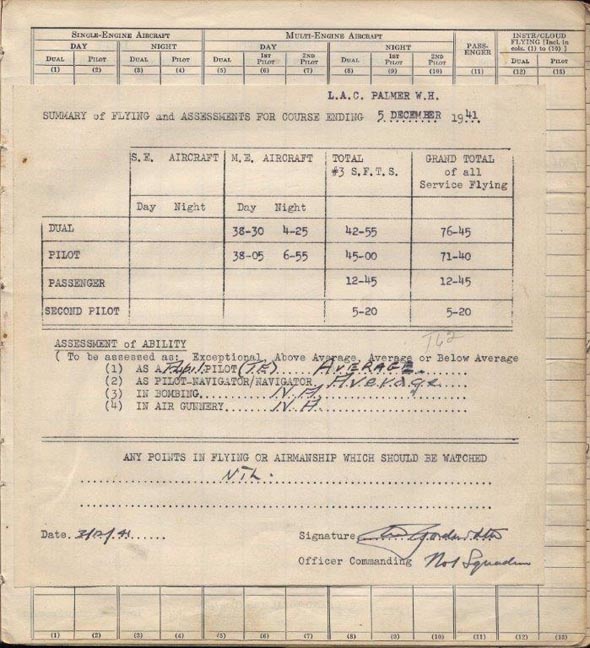 SINGLE-ENGINE AIRCRAFT MULTI-ENGINE AIRCRAFT PASS-ENGER INSTR/CLOUD FLYING [Incl. in cols. (1) to (10)]
DAY NIGHT DAY NIGHT
DUAL PILOT DUAL PILOT DUAL 1ST PILOT 2ND PILOT DUAL 1ST PILOT 2ND PILOT DUAL PILOT
(1) (2) (3) (4) (5) (6) (7) (8) (9) (10) (11) (12) (13)
L.A.C. PALMER W.H.
SUMMARY of FLYING and ASSESSMENTS FOR COURSE ENDING 5 DECEMBER 1941
S.E. AIRCRAFT M.E. AIRCRAFT TOTAL #3 S.F.T.S. GRAND TOTAL of all Service Flying
Day Night Day Night
DUAL 38-30 4-25 42-55 76-45
PILOT 38-05 6-55 45-00 71-40
PASSENGER 12-45 12-45
SECOND PILOT 5-20 5-20
T62
ASSESSMENT of ABILITY
( To be assessed as: Exceptional, Above Average, Average or Below Average
(1) AS A Pupil PILOT (T.E) AVERAGE
(2) AS PILOT-NAVIGATOR/NAVIGATOR Average
(3) IN BOMBING N.A
(4) IN AIR GUNNERY N.A
ANY POINTS IN FLYING OR AIRMANSHIP WHICH SHOULD BE WATCHED
NIL.
Date
Signature
Officer Commanding No 1 Squadron
(1) (2) (3) (4) (5) (6) (7) (8) (9) (10) (11) (12) (13)